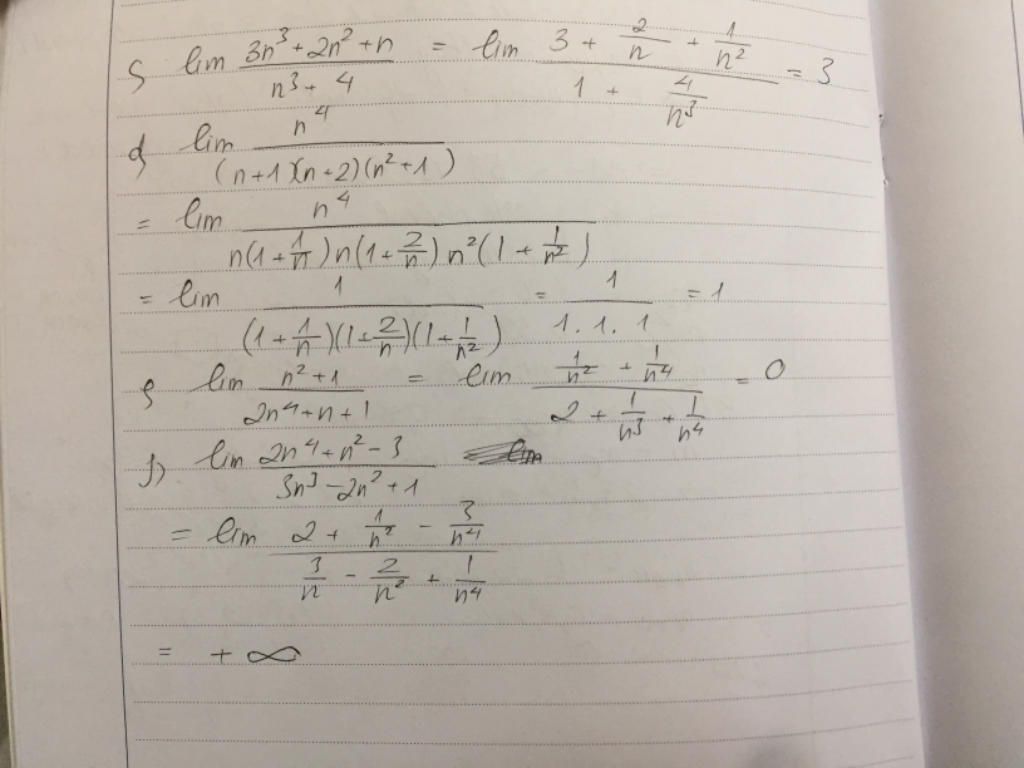 c) lim (3n³ + 2n² + n)/(n³ + 4) = lim (3 + 2/n + 1/n²)/(1 + 4/n³) = 3
d) lim n⁴/((n+1)(n+2)(n²+1))
= lim n⁴/(n(1+1/n)n(1+2/n)n²(1+1/n²))
= lim 1/((1+1/n)(1+2/n)(1+1/n²)) = 1/(1.1.1) = 1
e) lim (n²+1)/(2n⁴+n+1) = lim (1/n² + 1/n⁴)/(2 + 1/n³ + 1/n⁴) = 0
f) lim (2n⁴+n²-3)/(3n³-2n²+1)
= lim (2 + 1/n² - 3/n⁴)/(3/n - 2/n² + 1/n⁴)
= +∞